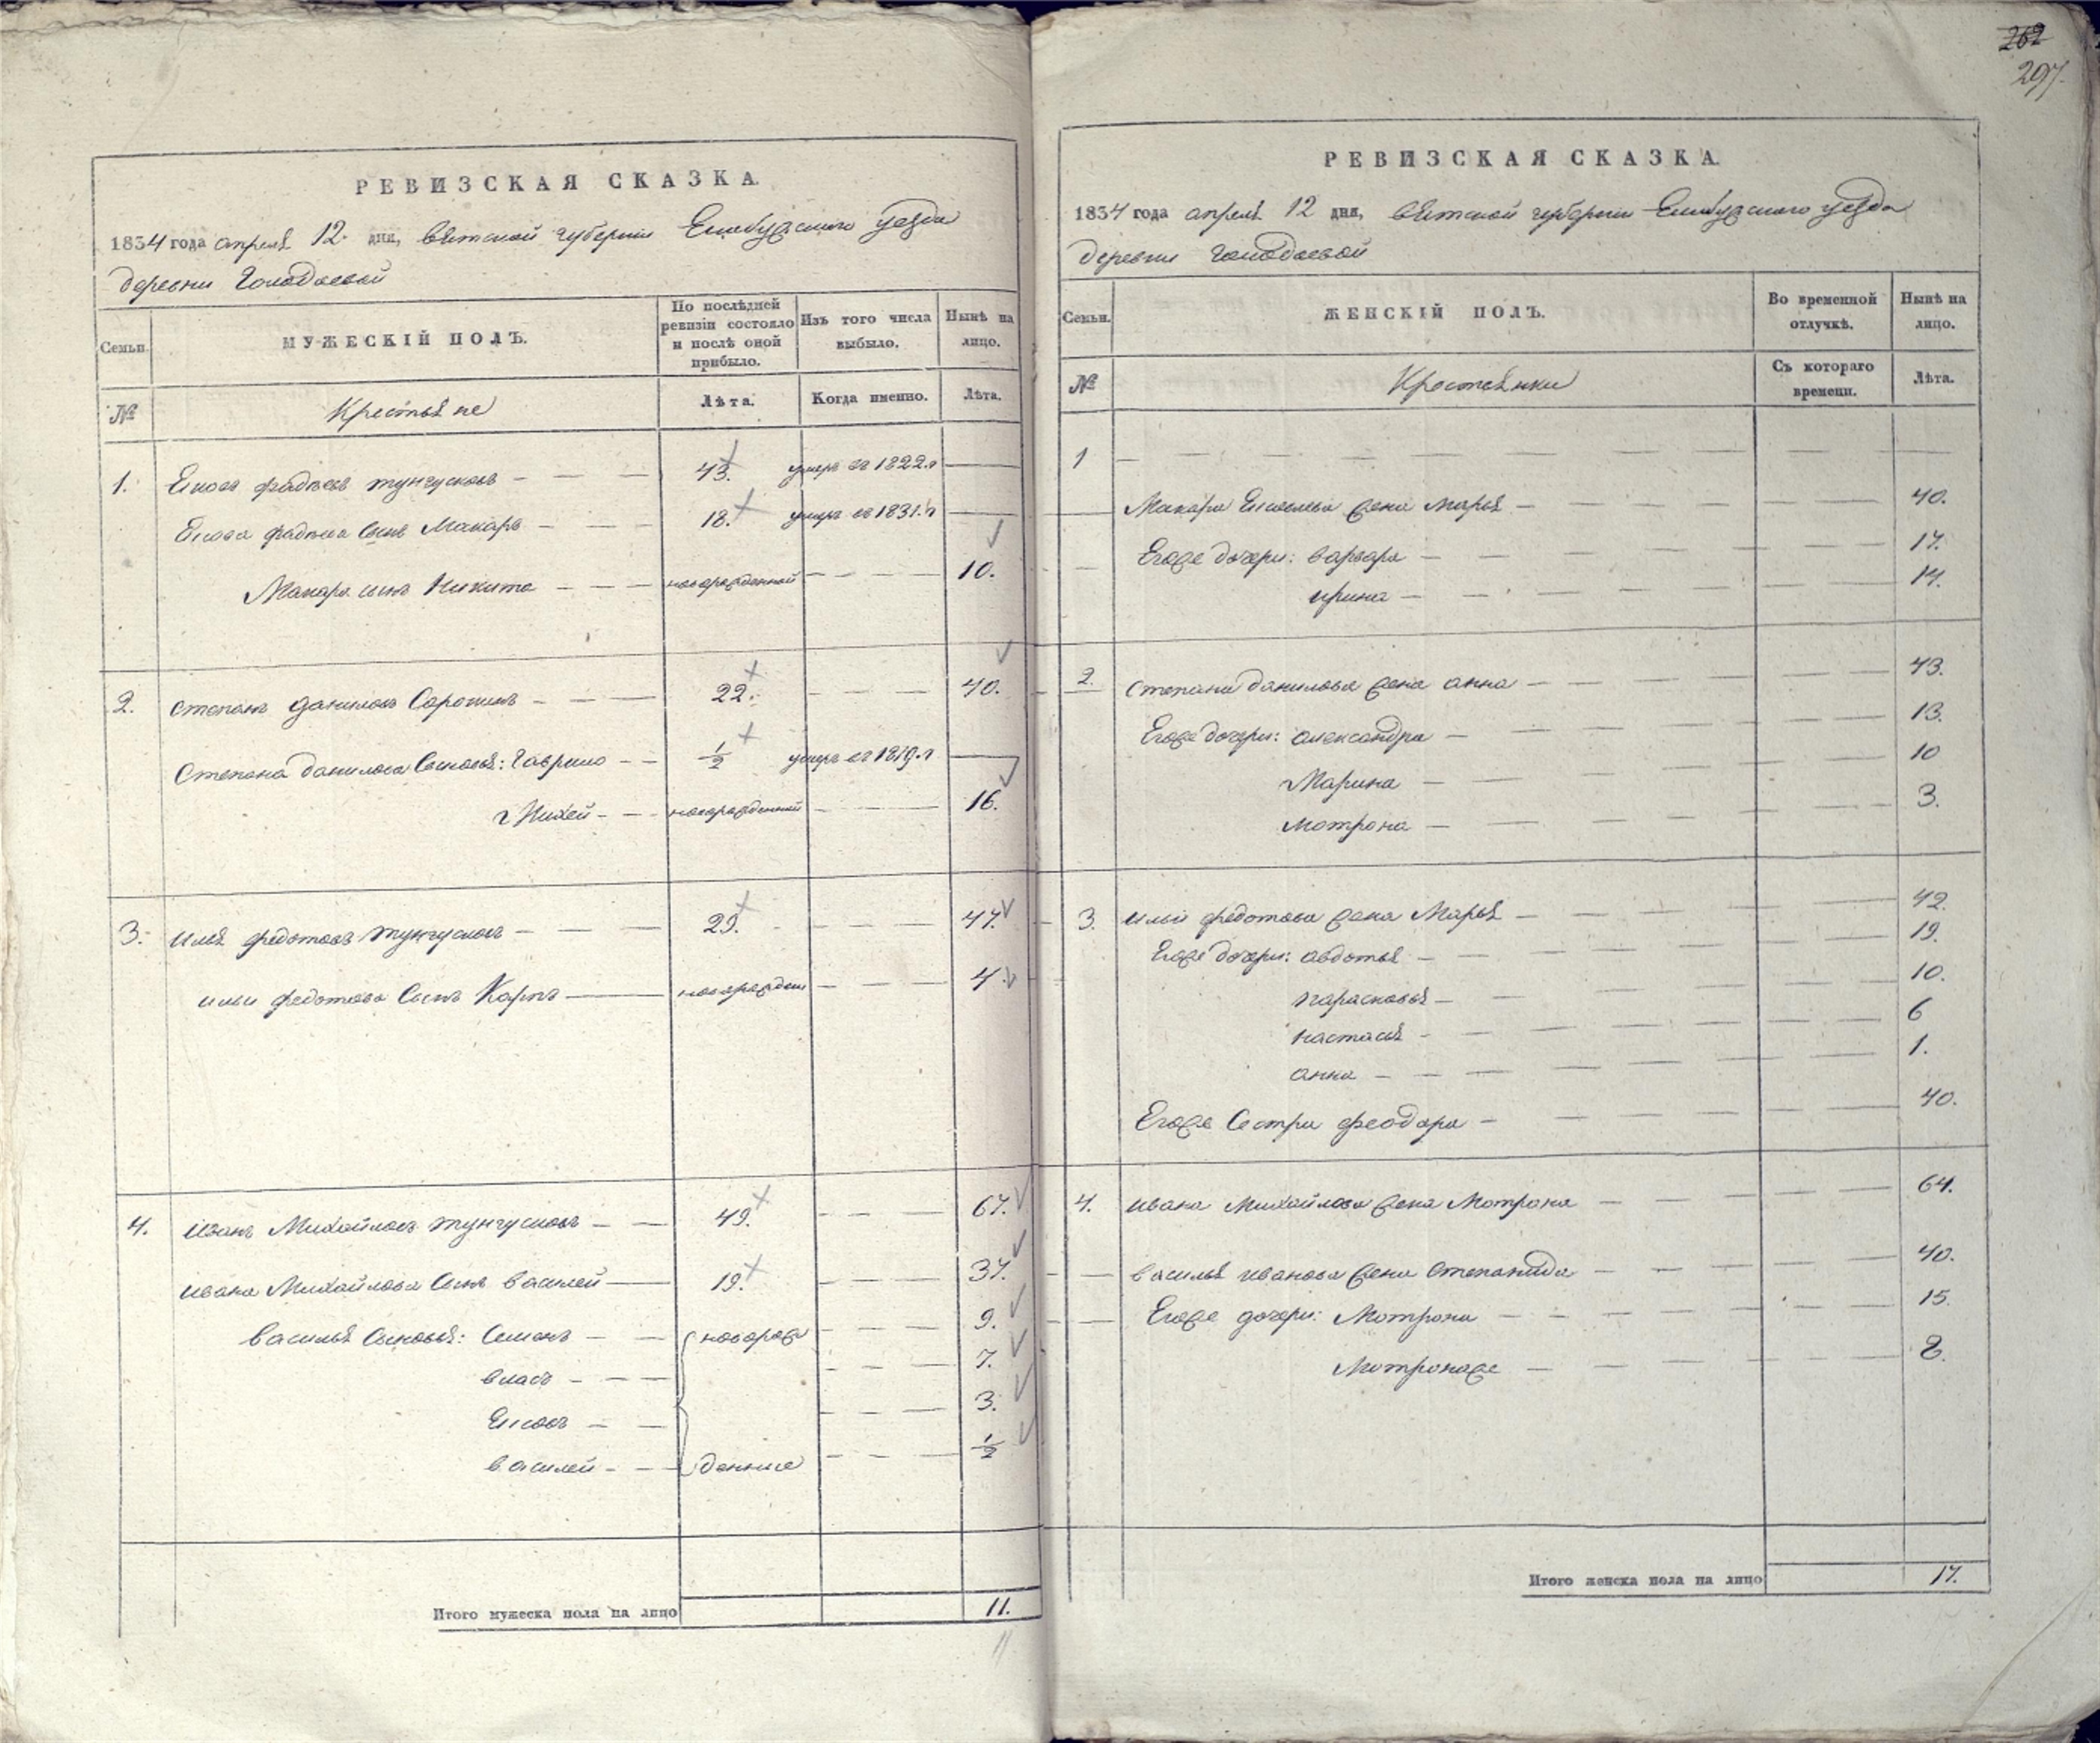 262
297.
РЕВИЗСКАЯ СКАЗКА.
1834 года апреля 12. дня, Вятской губернии Елабужского уезда
деревни Голодаевой
Семьи.
МУЖЕСКІЙ ПОЛЪ.
По послѣдней ревизіи состояло и послѣ оной прибыло.
Изъ того числа выбыло.
Нынѣ на лицо.
№
Крестьяне
Лѣта.
Когда именно.
Лѣта.
1. Фадѣевъ Тунгусковъ — — — 43. умеръ въ 1822.г ——
Фадѣева сынъ Макаръ — — — 18. умеръ въ 1831.г ——
Макара сынъ Никита — — — новорожденной — — — 10.
2. Степанъ Даниловъ Сорокинъ — — — 22. — — — 40.
Степана Данилова сыновья: Гаврило — — 1/2 умеръ въ 1819.г ——
Михей — — новорожденной — — — 16.
3. Илья Федотовъ Тунгусковъ — — — 29. — — — 47.
Ильи Федотова сынъ Карпъ —— новорожден — — — 4.
4. Иванъ Михайловъ Тунгусковъ — — 49. — — — 67.
Ивана Михайлова сынъ Василей —— 19. — — — 37.
Василья сыновья: Семенъ — — новорож — — — 9.
Власъ — — — — — — 7.
— — — — — 3.
Василей — — — денные — — — 1/2
Итого мужеска пола на лицо 11.
11
РЕВИЗСКАЯ СКАЗКА.
1834 года апреля 12 дня, Вятской губернии Елабужского уезда
деревни Голодаевой
Семьи.
ЖЕНСКІЙ ПОЛЪ.
Во временной отлучкѣ.
Нынѣ на лицо.
№
Крестьянки
Съ котораго времени.
Лѣта.
1 — — — — — — — —
Макара жена Марья — — — — 40.
Егоже дочери: Варвара — — — — 17.
Ирина — — — — 14.
2. Степана Данилова жена Анна — — — — 43.
Егоже дочери: Александра — — — — 13.
Марина — — — — 10
Мотрона — — — — 3.
3. Ильи Федотова жена Марья — — — — 42.
Егоже дочери: Авдотья — — — — 19.
Парасковья — — — — 10.
Настасья — — — — 6
Анна — — — — 1.
Егоже сестра Феодора — — — — 40.
4. Ивана Михайлова жена Мотрона — — — — 64.
Василья Иванова жена Степанида — — — — 40.
Егоже дочери: Мотрона — — — — 15.
Мотронаже — — — — 8.
Итого женска пола на лицо 17.